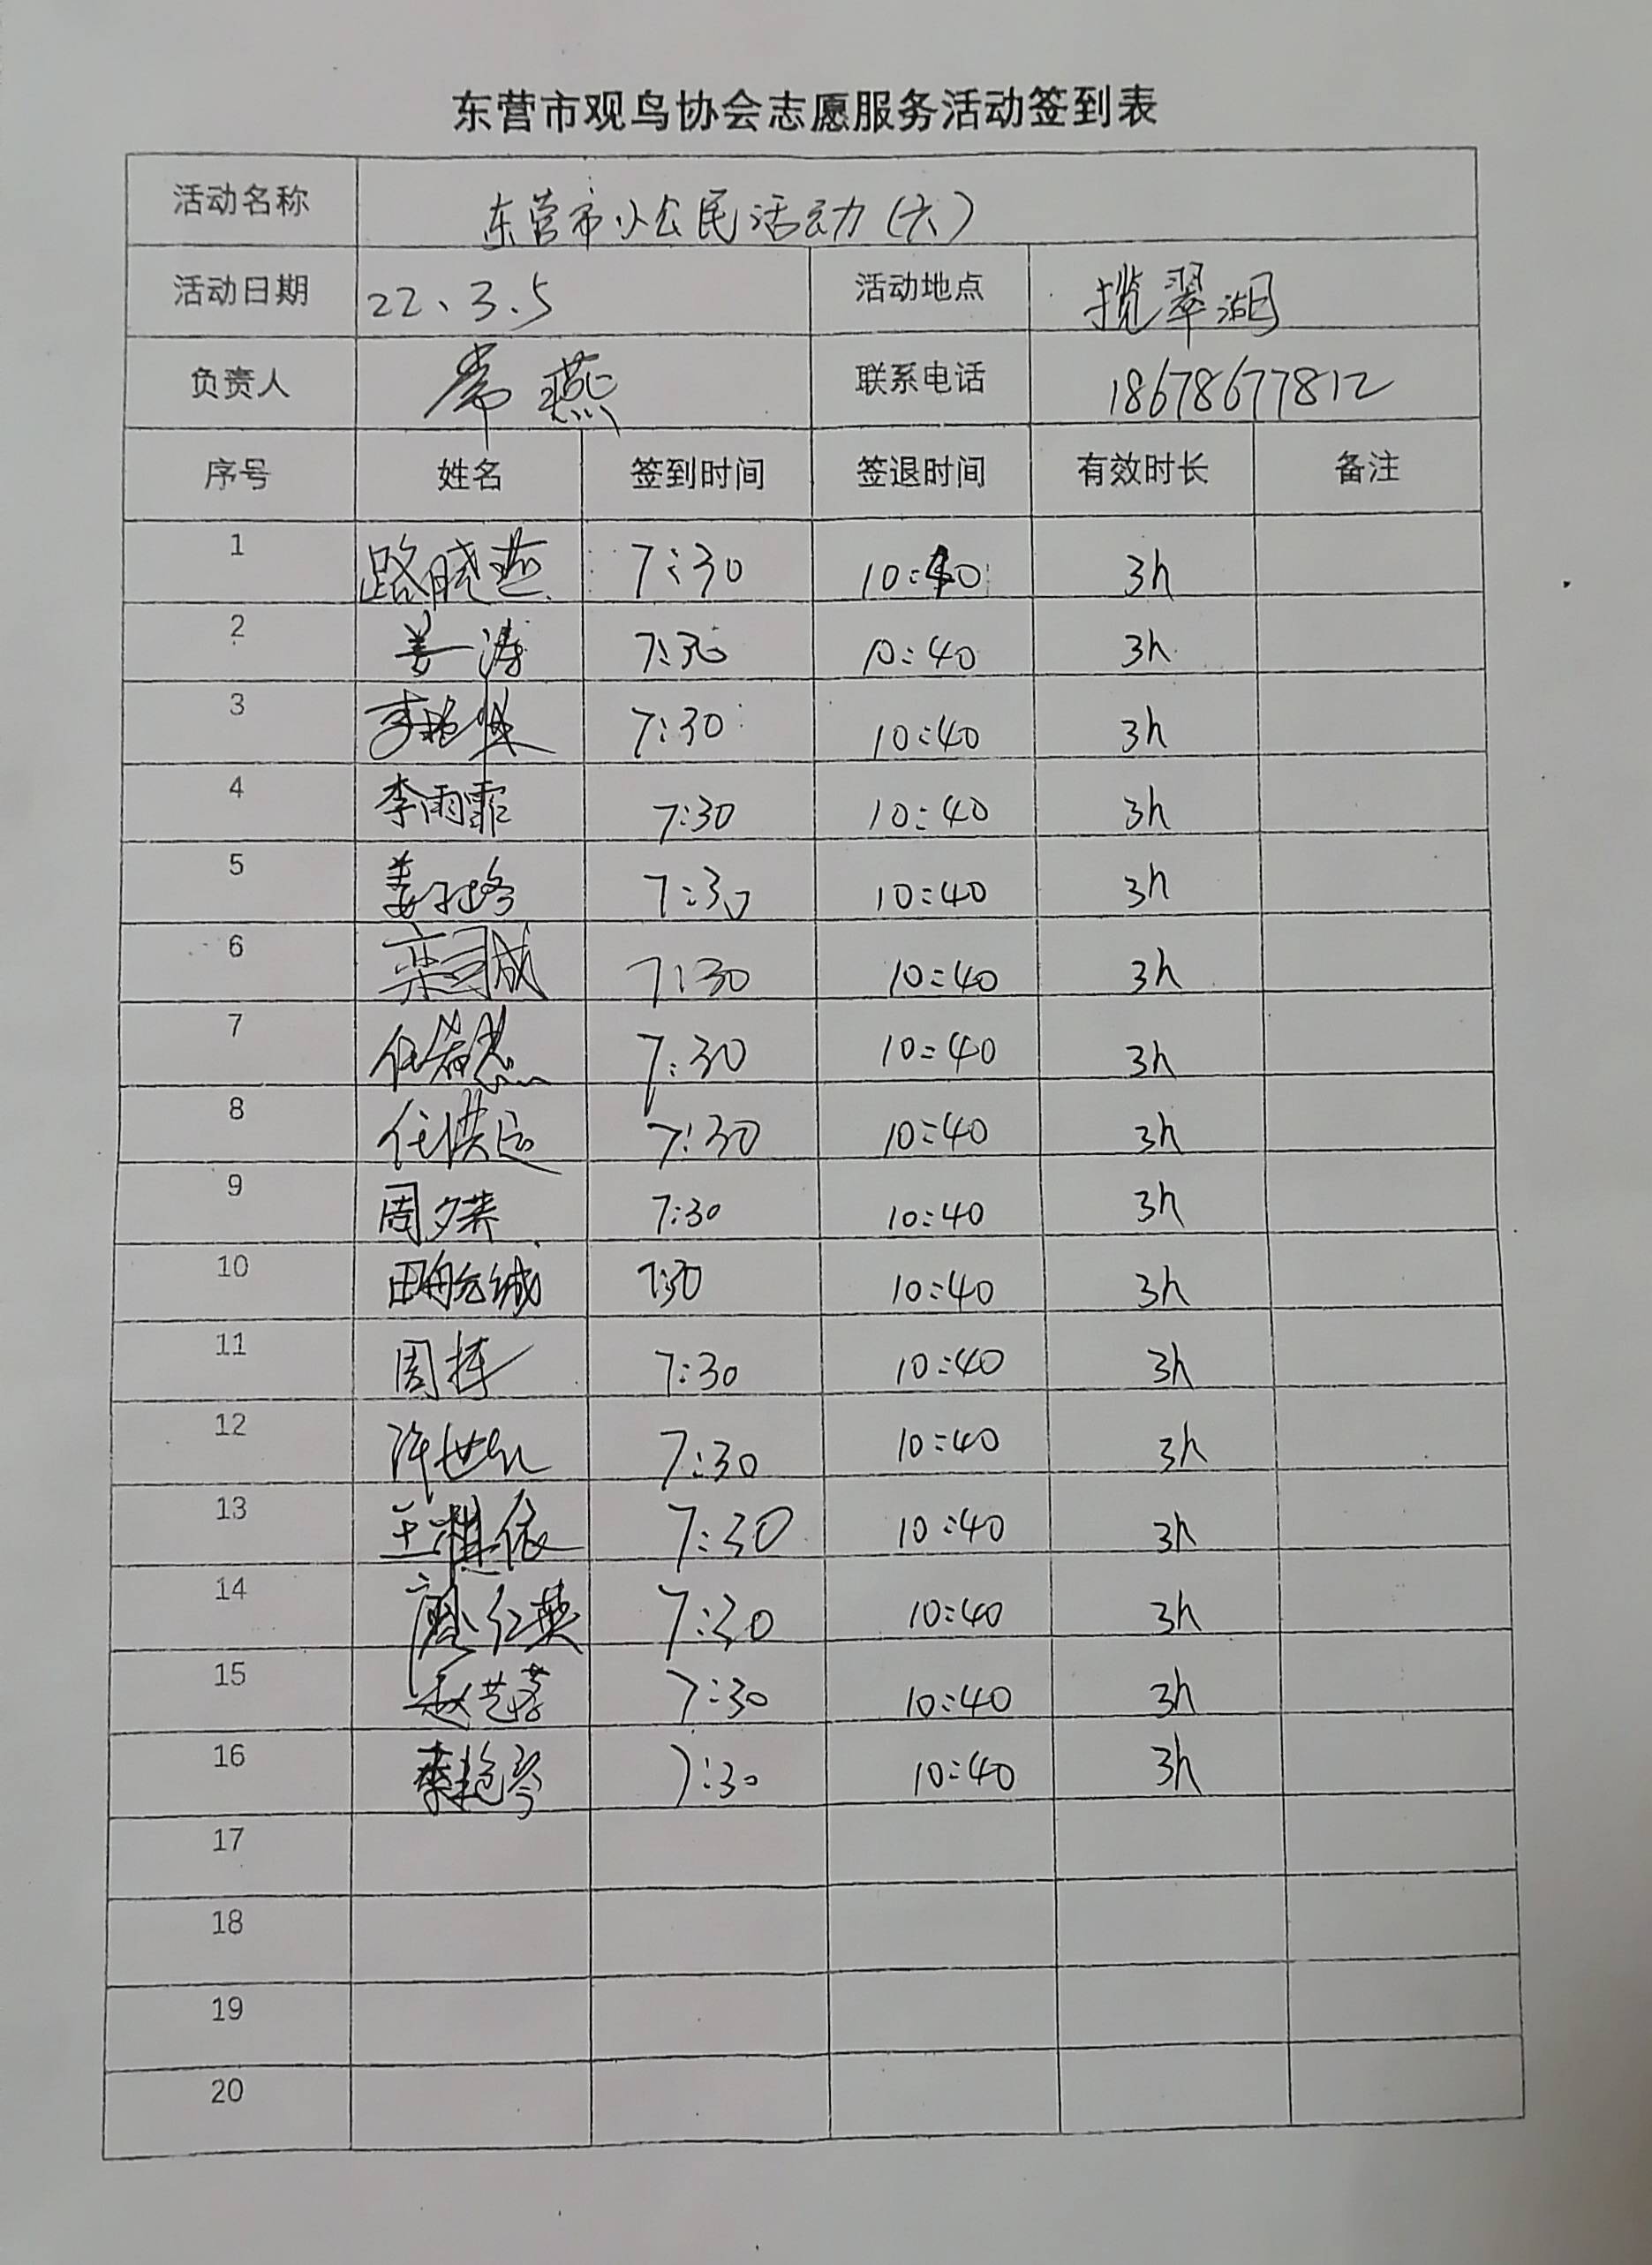 东营市观鸟协会志愿服务活动签到表
活动名称 东营市小公民活动（六）
活动日期 22、3.5 活动地点 揽翠湖
负责人 常燕 联系电话 18678677812
序号 姓名 签到时间 签退时间 有效时长 备注
1 路晓燕 7:30 10:40 3h
2 姜涛 7:30 10:40 3h
3 李 7:30 10:40 3h
4 李雨霏 7:30 10:40 3h
5 姜 7:30 10:40 3h
6 栾 成 7:30 10:40 3h
7 任 7:30 10:40 3h
8 任洪运 7:30 10:40 3h
9 周夕 7:30 10:40 3h
10 田 诚 7:30 10:40 3h
11 周 7:30 10:40 3h
12 许世 7:30 10:40 3h
13 王 依 7:30 10:40 3h
14 仁英 7:30 10:40 3h
15 赵艺 7:30 10:40 3h
16 李艳琴 7:30 10:40 3h
17
18
19
20